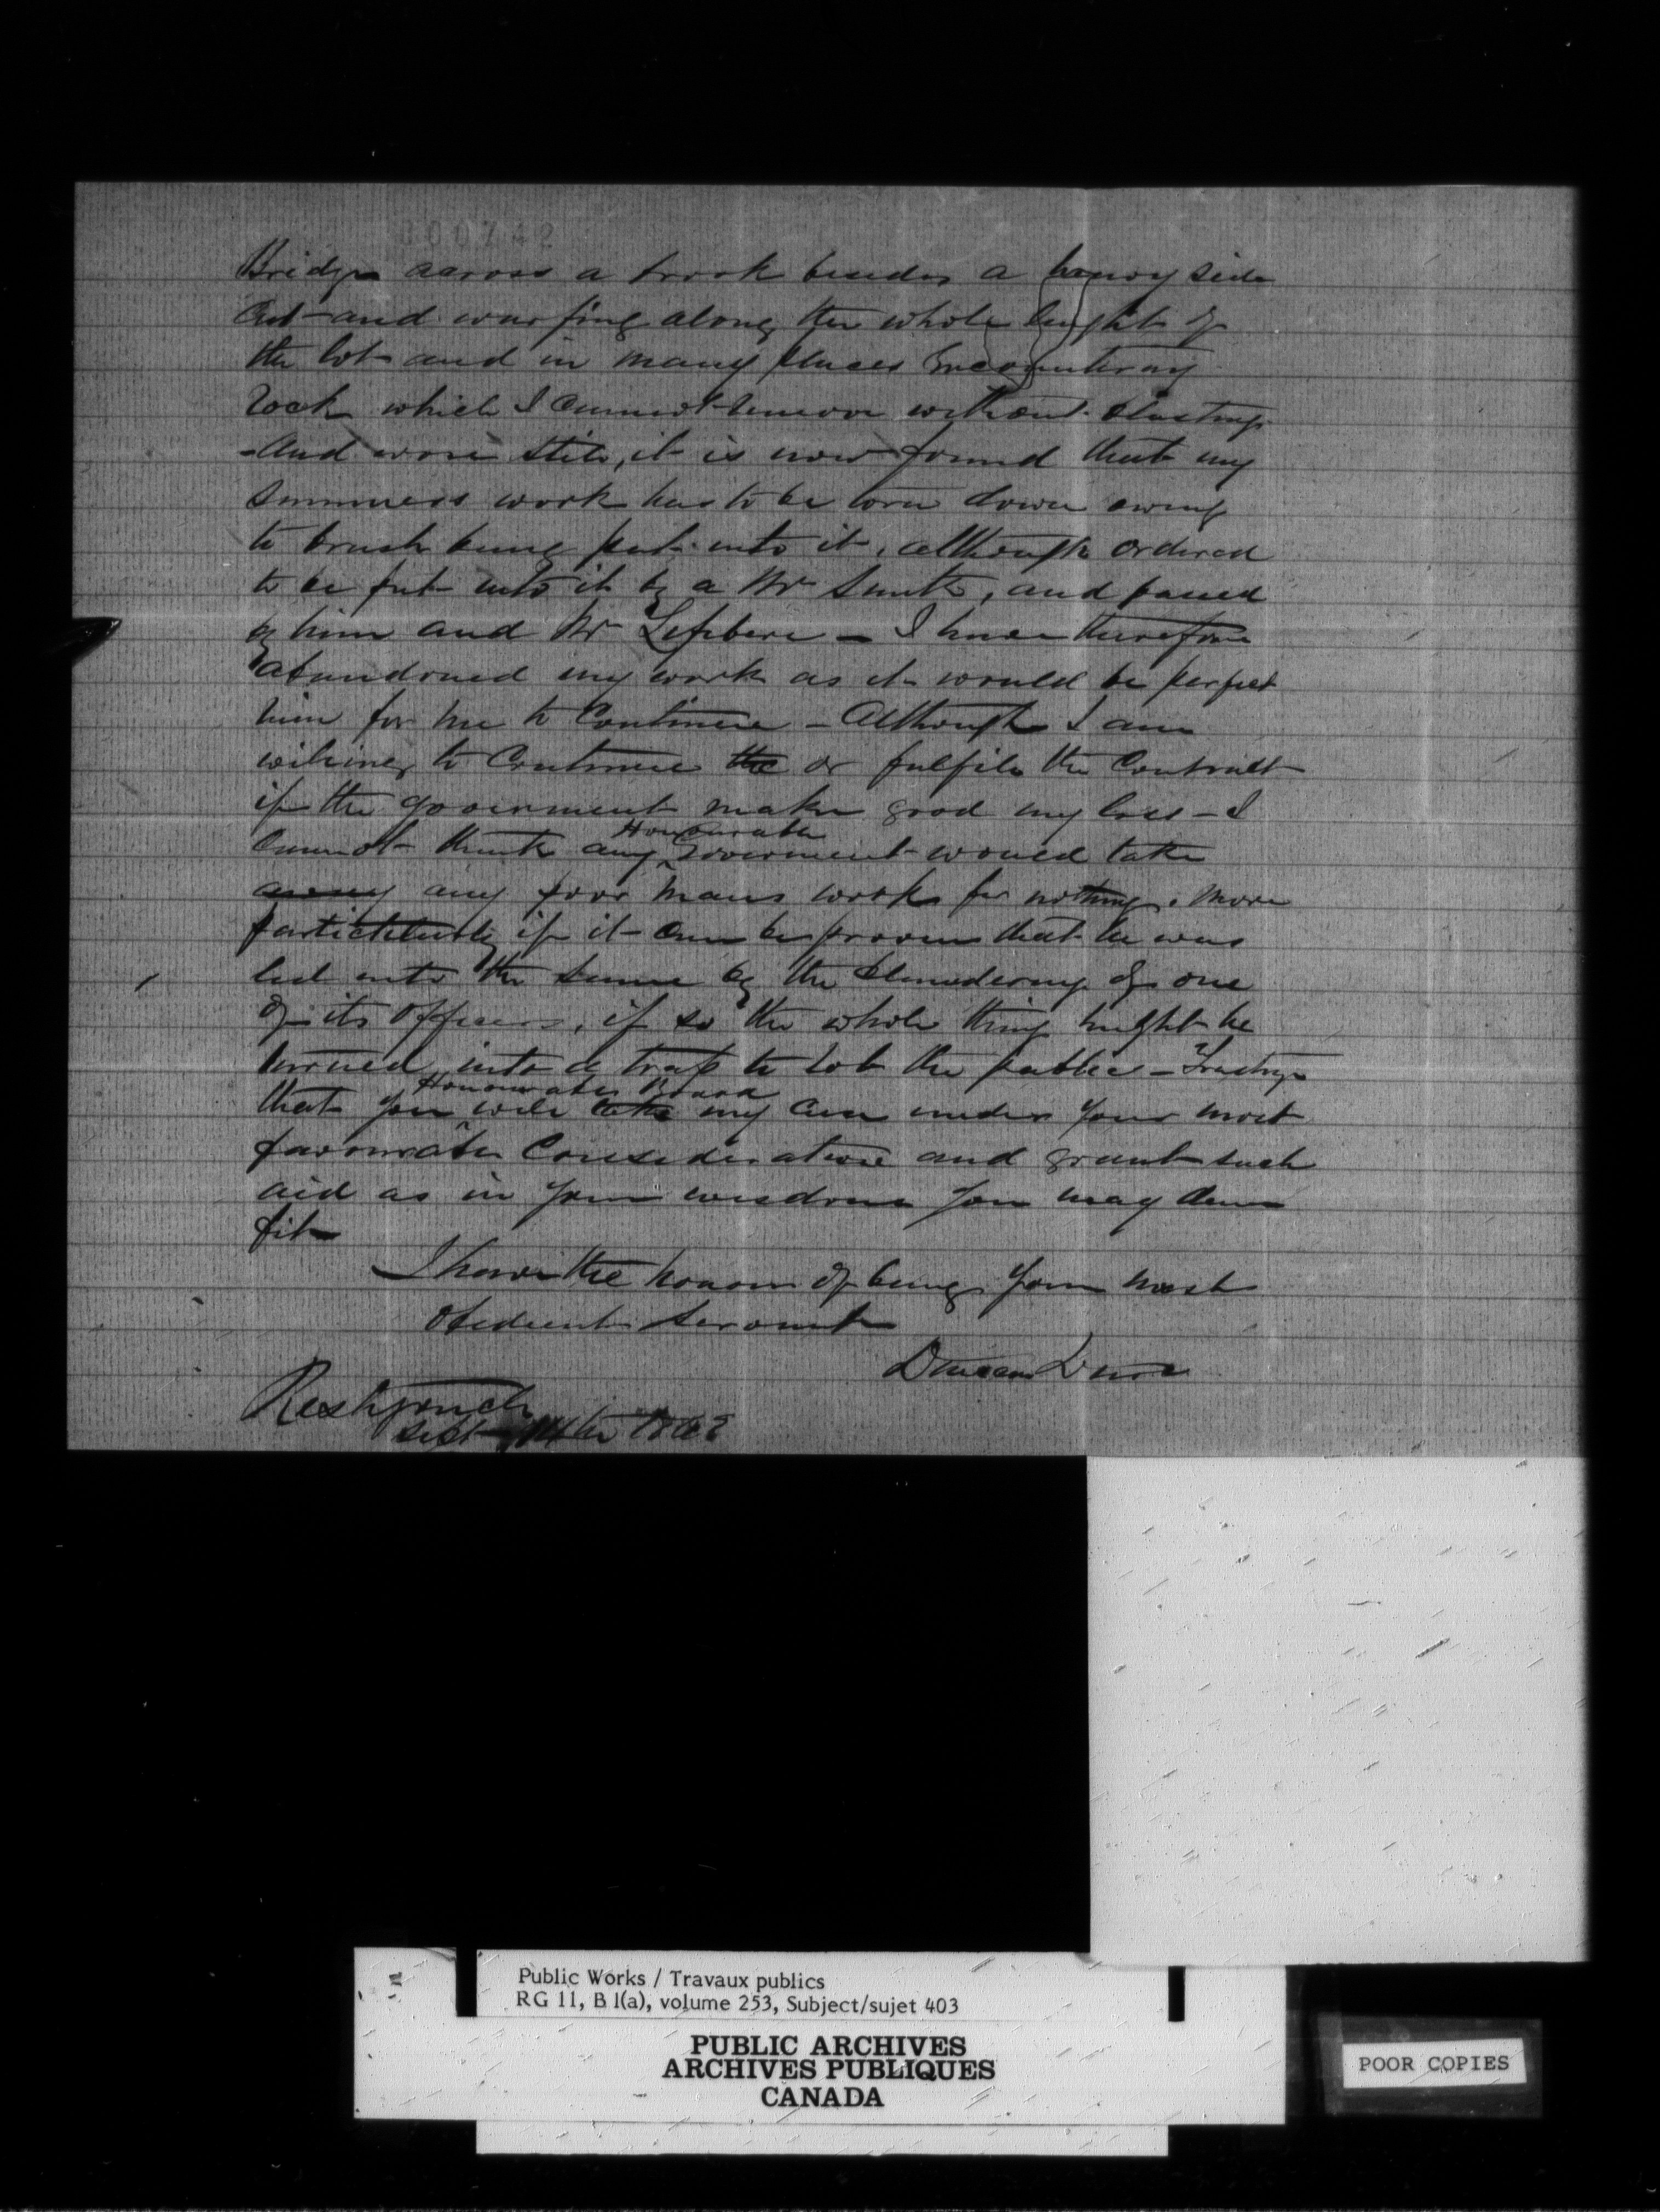 000742
Bridge across a brook besides a heavy side
Cut and warfing along the whole lenght of
the lot and in many places Encountering
Rock which I Cannot remove without blasting
And worse still, it is now found that my
Summers work has to be torn down owing
to brush being put into it, although ordered
to be put into it by a Mr Smith, and passed
by him and Mr Lefebere – I have therefore
abandoned my work as it would be perfect
for me to Continue – Although I am
willing to Continue the or fulfill the Contract
if the government make good my loss – I
Cannot think any Honourable Government would take
away any poor mans work for nothing. more
particularly if it can be proven that he was
led into the same by the blundering of one
of its Officers, if so the whole thing might be
turned into a trap to rob the public – Trusting
that your Honourable Board will take my Case under your most
favourable Consideration and grant such
aid as in your wisdom you may deem
fit
I have the honour of being your most
Obedient Servant
Duncan
Restigouch
Sept 14th
Public Works / Travaux publics
RG 11, B 1(a), volume 253, Subject/sujet 403
PUBLIC ARCHIVES
ARCHIVES PUBLIQUES
CANADA
POOR COPIES